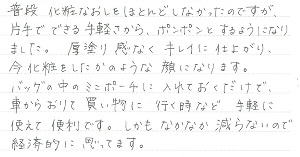 普段 化粧なおしをほとんどしなかったのですが、
片手でできる手軽さから、ポンポンとするようになり
ました。 厚塗り感なくキレイに仕上がり、
今化粧をしたかのような顔になります。
バッグの中のミニポーチに入れておくだけで、
車からおりて買い物に行く時など 手軽に
使えて便利です。しかもなかなか減らないので
経済的に思ってます。